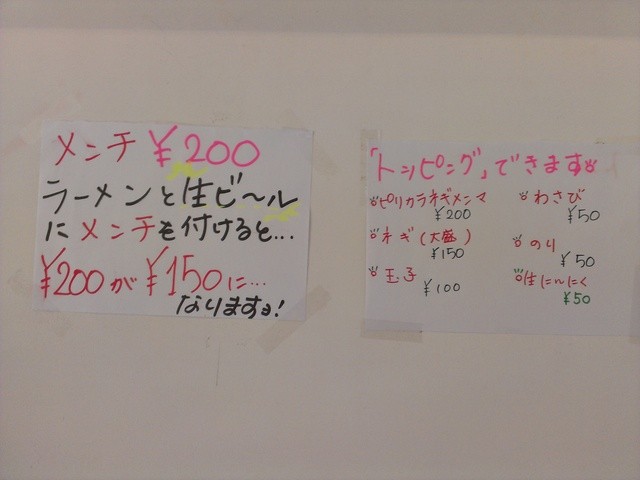 メンチ ¥200
ラーメンと生ビ〜ル
にメンチを付けると...
¥200が¥150に...
なりますョ!
「トッピング」できます
ピリカラネギメンマ
¥200
ネギ(大盛)
¥150
玉子
¥100
わさび
¥50
のり
¥50
生にんにく
¥50